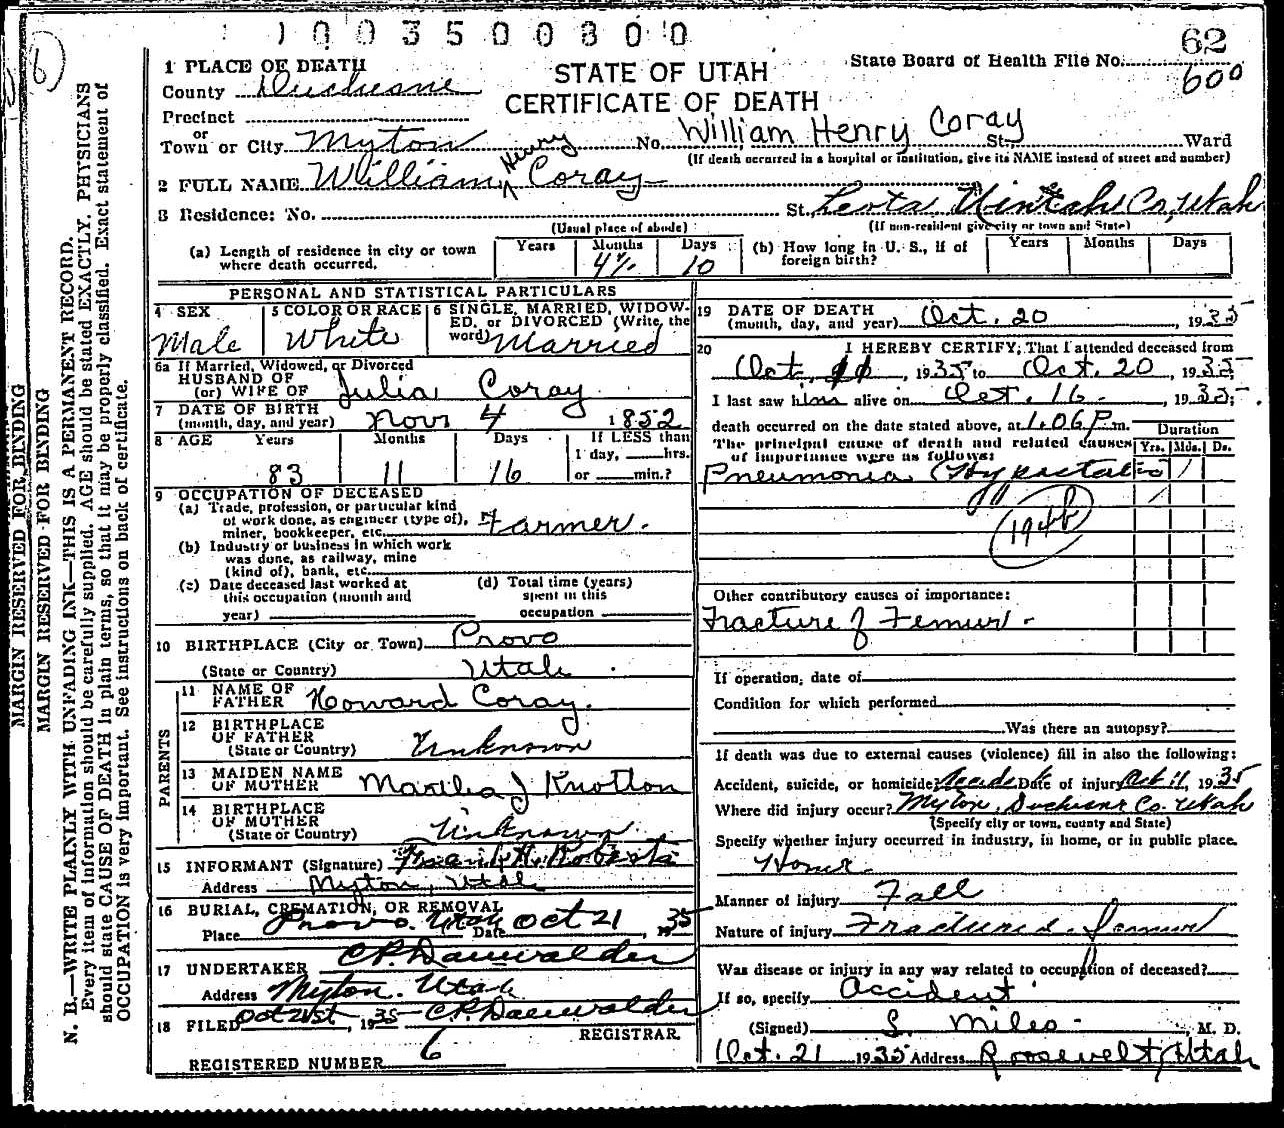 1003500800
62
600
1 PLACE OF DEATH
County Duchesne
Precinct
or
Town or City Myton No. William Henry Coray St. Ward
STATE OF UTAH
CERTIFICATE OF DEATH
State Board of Health File No.
(If death occurred in a hospital or institution, give its NAME instead of street and number)
2 FULL NAME William Henry Coray
3 Residence: No. St. Leota Uintah Co, Utah
(Usual place of abode) (If non-resident give city or town and State)
(a) Length of residence in city or town where death occurred. Years Months 4 Days 10
(b) How long in U. S., if of foreign birth? Years Months Days
PERSONAL AND STATISTICAL PARTICULARS
4 SEX Male
5 COLOR OR RACE White
6 SINGLE, MARRIED, WIDOWED, or DIVORCED (Write the word) Married
6a If Married, Widowed, or Divorced
HUSBAND OF
(or) WIFE OF Julia Coray
7 DATE OF BIRTH
(month, day, and year) Nov 4 1852
8 AGE Years 83 Months 11 Days 16
If LESS than
1 day, hrs.
or min.?
9 OCCUPATION OF DECEASED
(a) Trade, profession, or particular kind
of work done, as engineer (type of),
miner, bookkeeper, etc. Farmer.
(b) Industry or business in which work
was done, as railway, mine
(kind of), bank, etc.
(c) Date deceased last worked at
this occupation (month and
year)
(d) Total time (years)
spent in this
occupation
10 BIRTHPLACE (City or Town) Provo
(State or Country) Utah
PARENTS
11 NAME OF
FATHER Howard Coray.
12 BIRTHPLACE
OF FATHER
(State or Country) Unknown
13 MAIDEN NAME
OF MOTHER Martha J Knolton
14 BIRTHPLACE
OF MOTHER
(State or Country) Unknown
15 INFORMANT (Signature) Frank H. Roberts
Address Myton, Utah
16 BURIAL, CREMATION, OR REMOVAL
Place Provo. Utah Date Oct 21 1935
17 UNDERTAKER C.P. Dauwalder
Address Myton. Utah
18 FILED Oct 21st, 1935 C.P. Dauwalder
REGISTRAR.
REGISTERED NUMBER 6
19 DATE OF DEATH
(month, day, and year) Oct. 20, 1935
20 I HEREBY CERTIFY; That I attended deceased from
Oct. 11, 1935 to Oct. 20, 1935
I last saw him alive on Oct. 16, 1935;
death occurred on the date stated above, at 1.06 P m.
The principal cause of death and related causes
of importance were as follows:
Duration
Yrs. Mos. Ds.
Pneumonia (Hypostatic)
194b
Other contributory causes of importance:
Fracture of Femur.
If operation, date of
Condition for which performed
Was there an autopsy?
If death was due to external causes (violence) fill in also the following:
Accident, suicide, or homicide? Accident Date of injury Oct 11, 1935
Where did injury occur? Myton, Duchesne Co. Utah
(Specify city or town, county and State)
Specify whether injury occurred in industry, in home, or in public place.
Home
Manner of injury Fall
Nature of injury Fractured Femur
Was disease or injury in any way related to occupation of deceased?
If so, specify Accident
(Signed) S. Miles, M. D.
Oct. 21 1935 Address Roosevelt, Utah
MARGIN RESERVED FOR BINDING
MARGIN RESERVED FOR BINDING
N. B.—WRITE PLAINLY WITH UNFADING INK—THIS IS A PERMANENT RECORD.
Every item of information should be carefully supplied. AGE should be stated EXACTLY. PHYSICIANS
should state CAUSE OF DEATH in plain terms, so that it may be properly classified. Exact statement of
OCCUPATION is very important. See instructions on back of certificate.